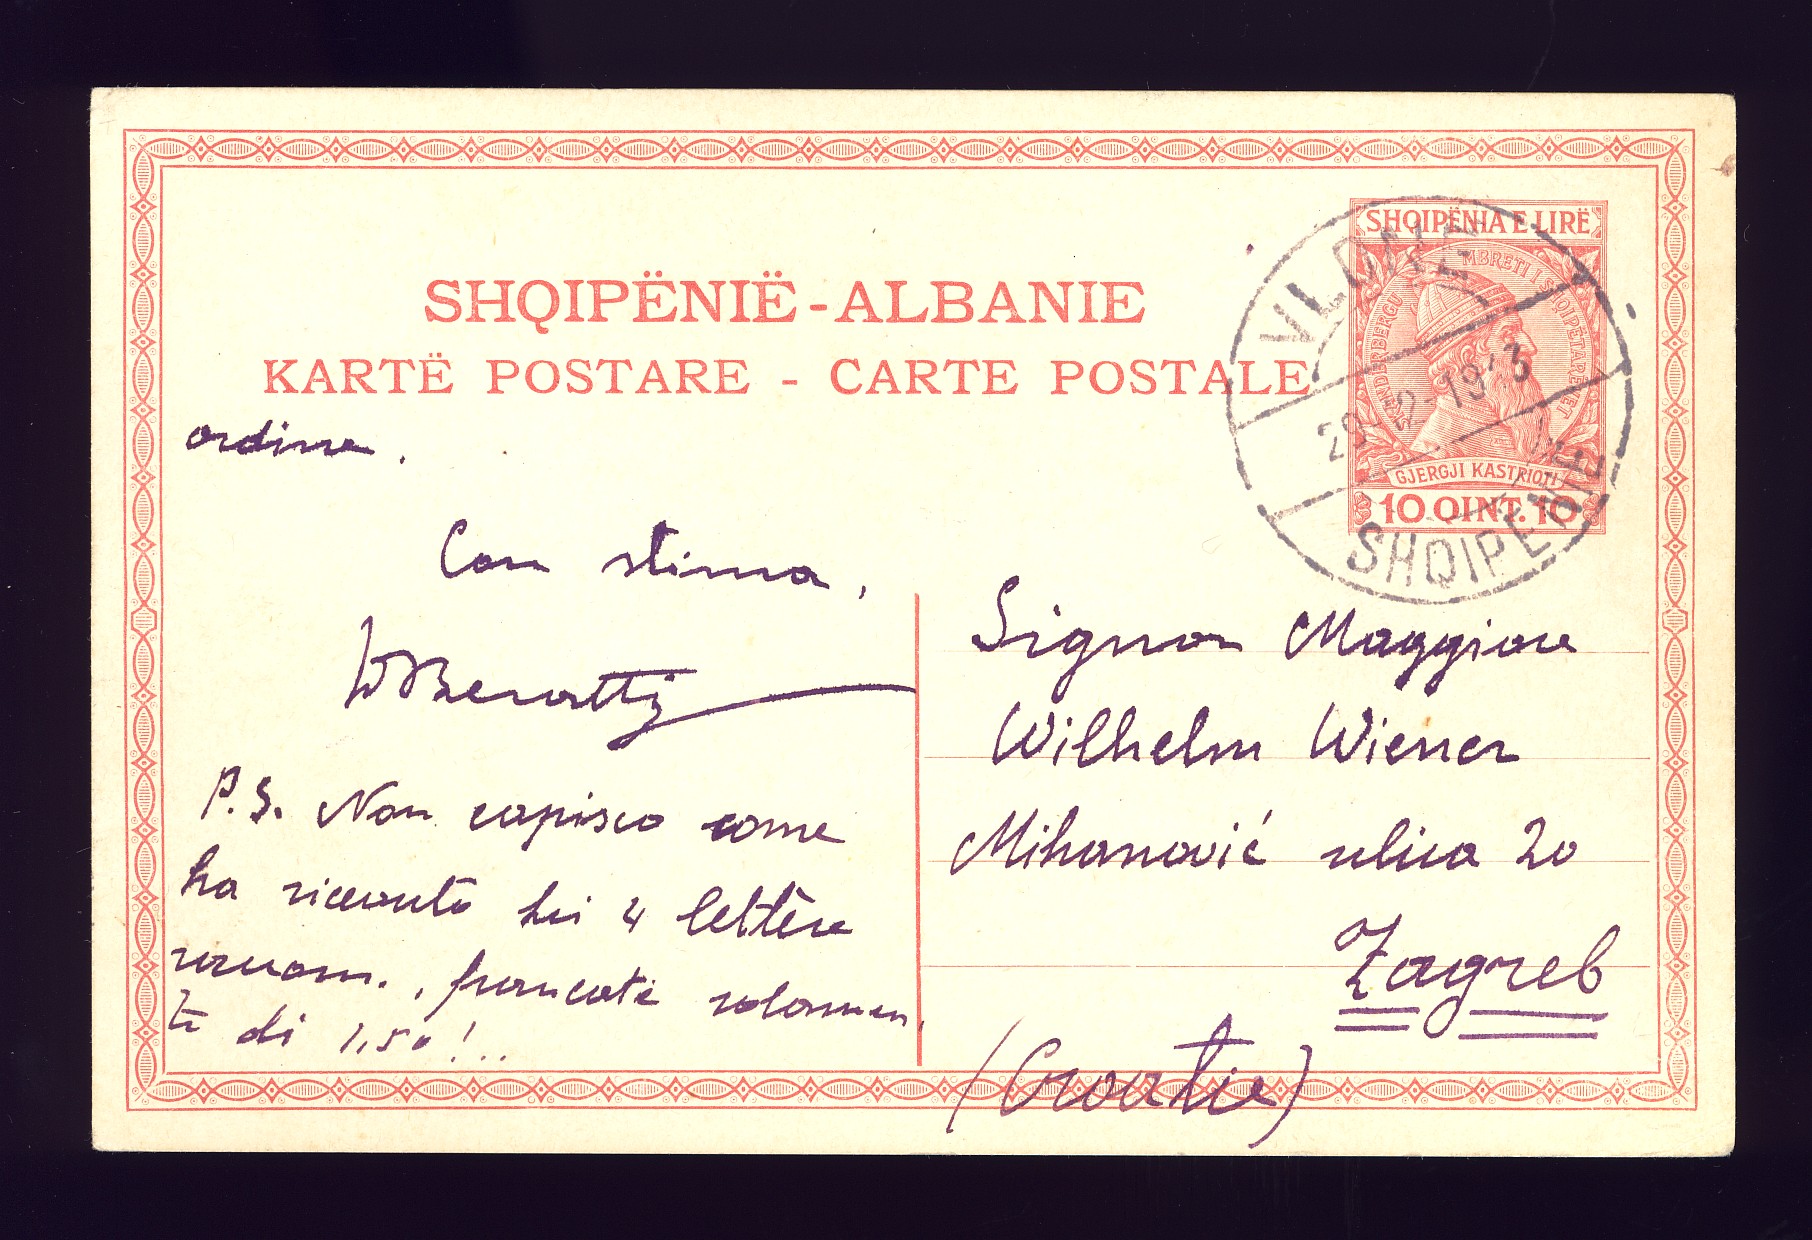 SHQIPËNIA E LIRË
SKENDERBERGU MBRETI I SHQIPËTARËVET
GJERGJI KASTRIOTI
10 QINT. 10
VLONË
SHQIPËNIE
SHQIPËNIË - ALBANIE
KARTË POSTARE - CARTE POSTALE
ordine.
Con stima,
P.S. Non capisco come
ha ricevuto Lei 4 lettere
raccom., francate solamen
te di 1,50!..
Signor Maggiore
Wilhelm Wiener
Mihanović ulica 20
Zagreb
(Croatie)